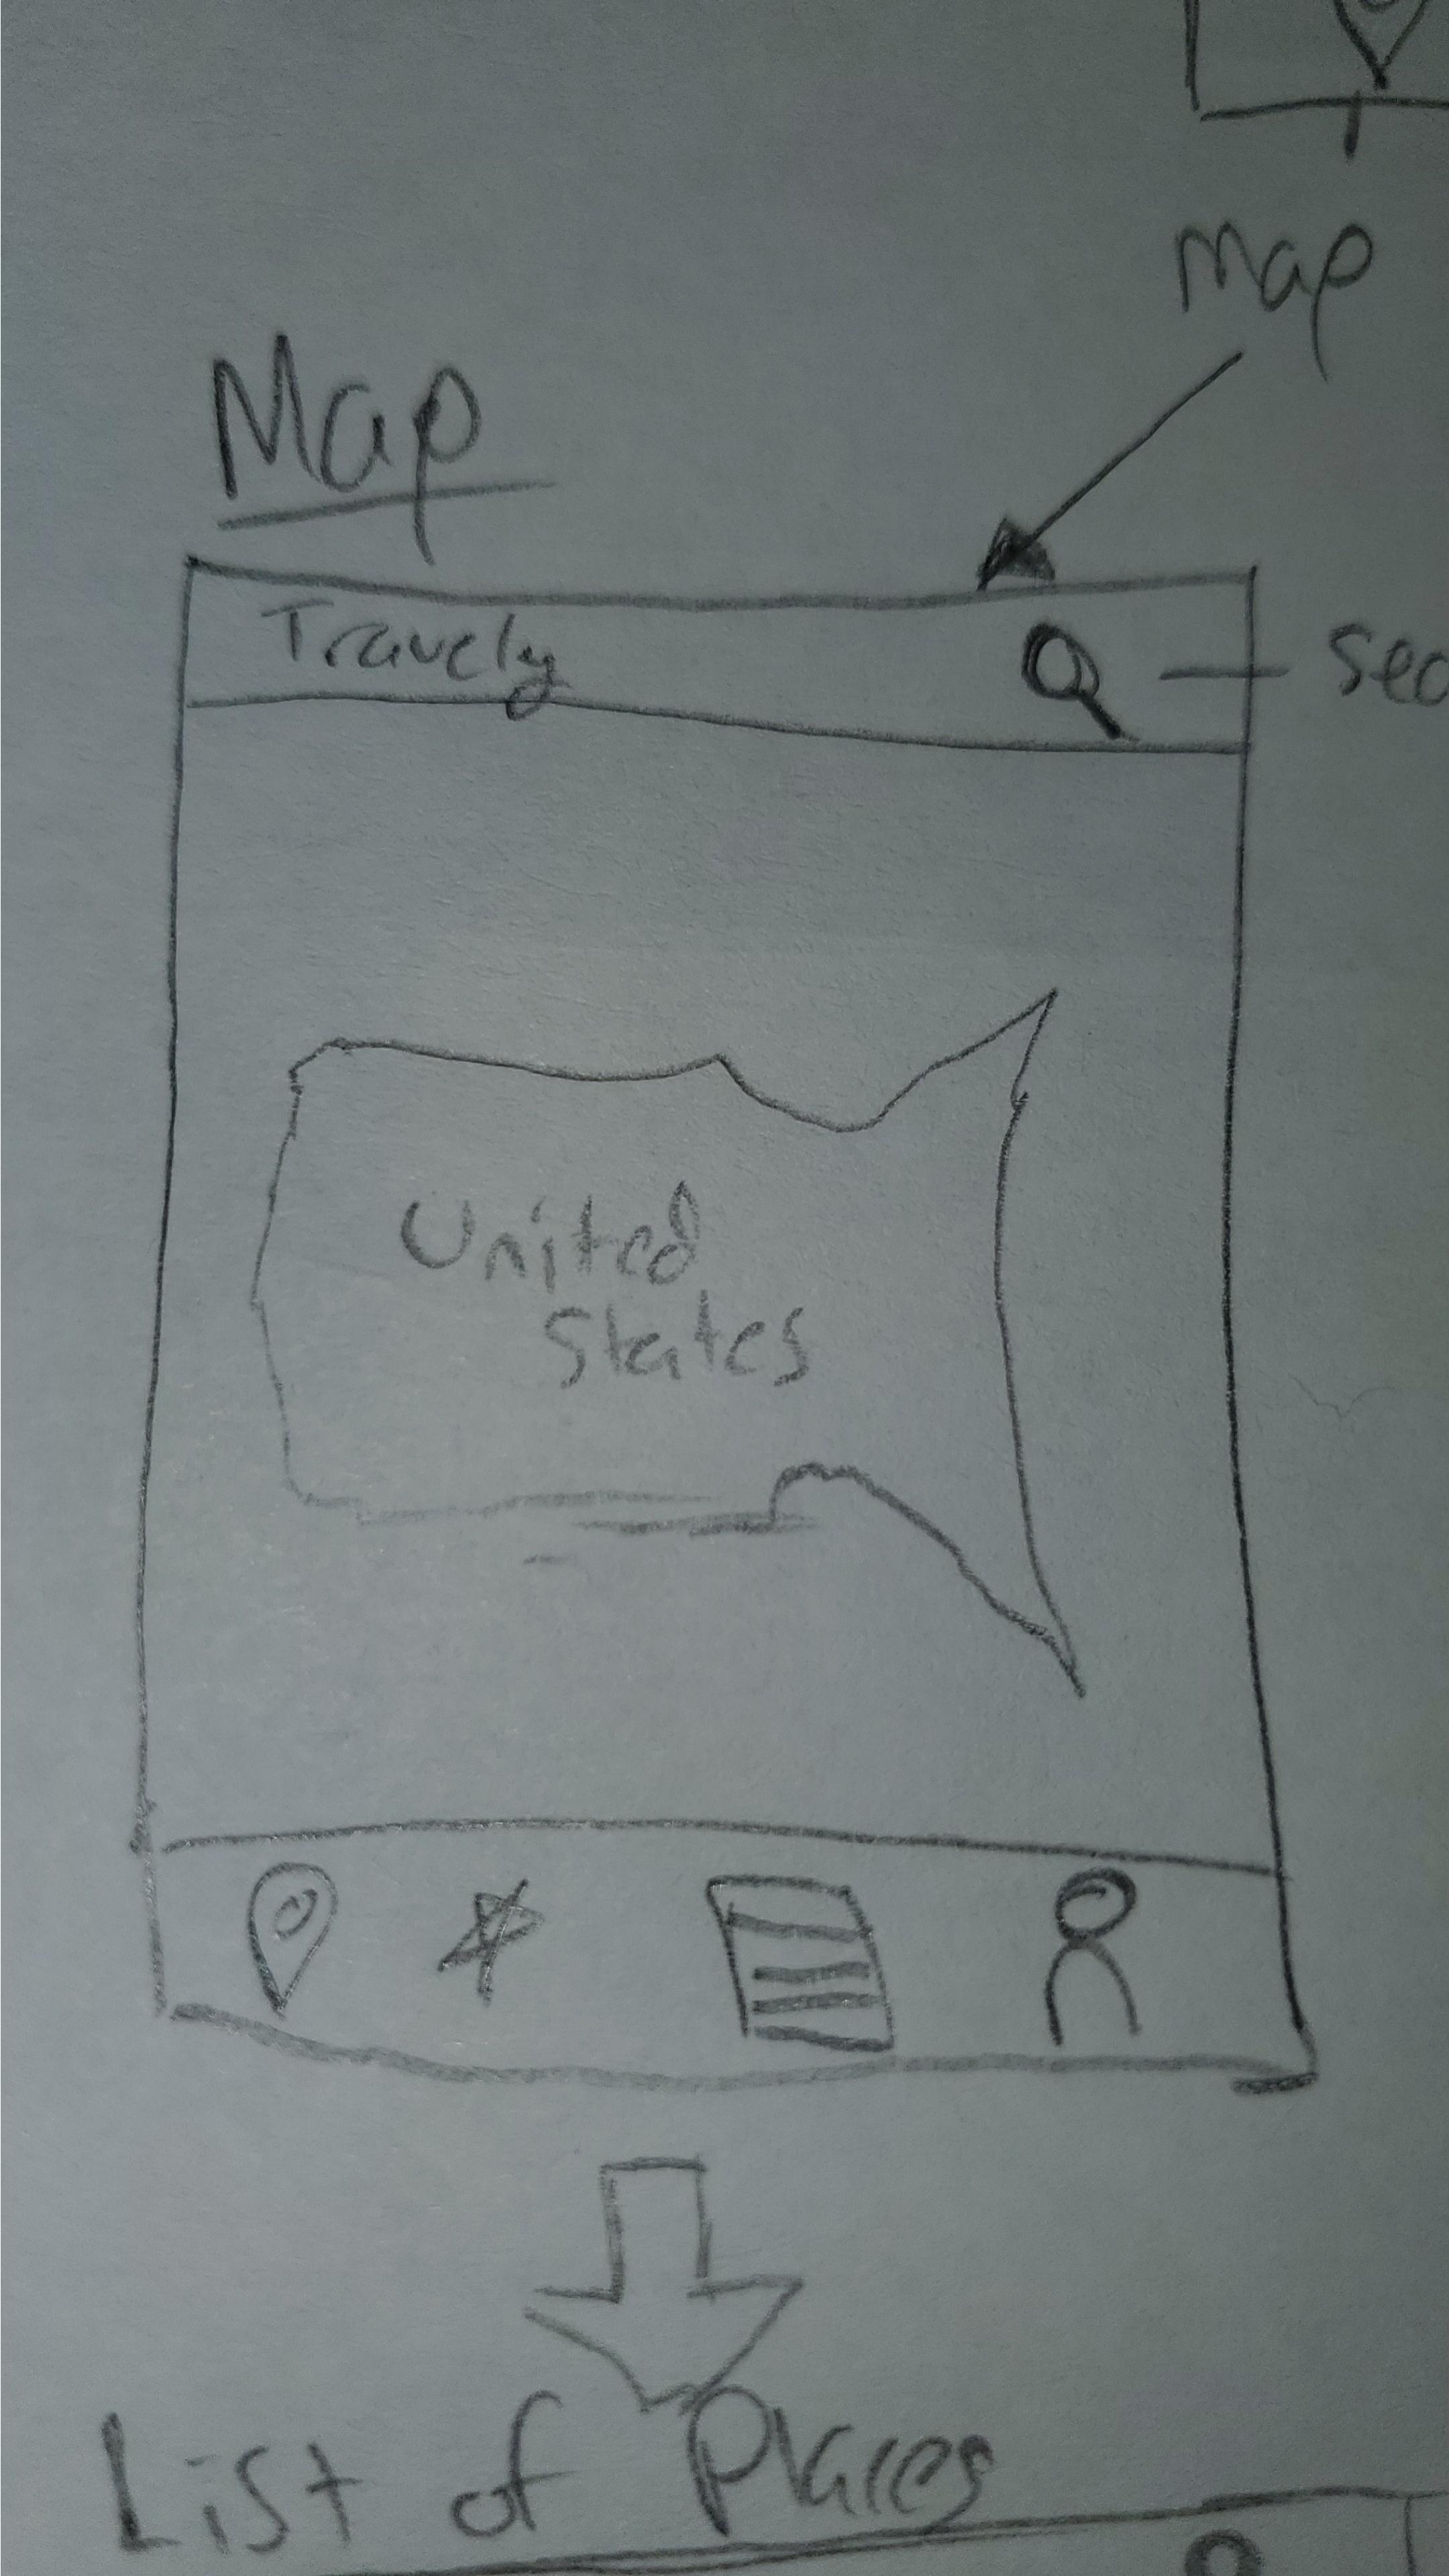 map
Map
Travely
United
States
List of Places